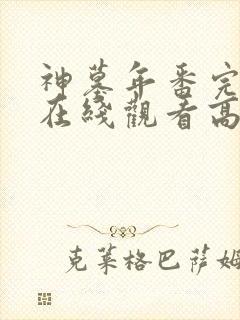 神墓年番完
在綫觀看高
克莱格巴萨姆